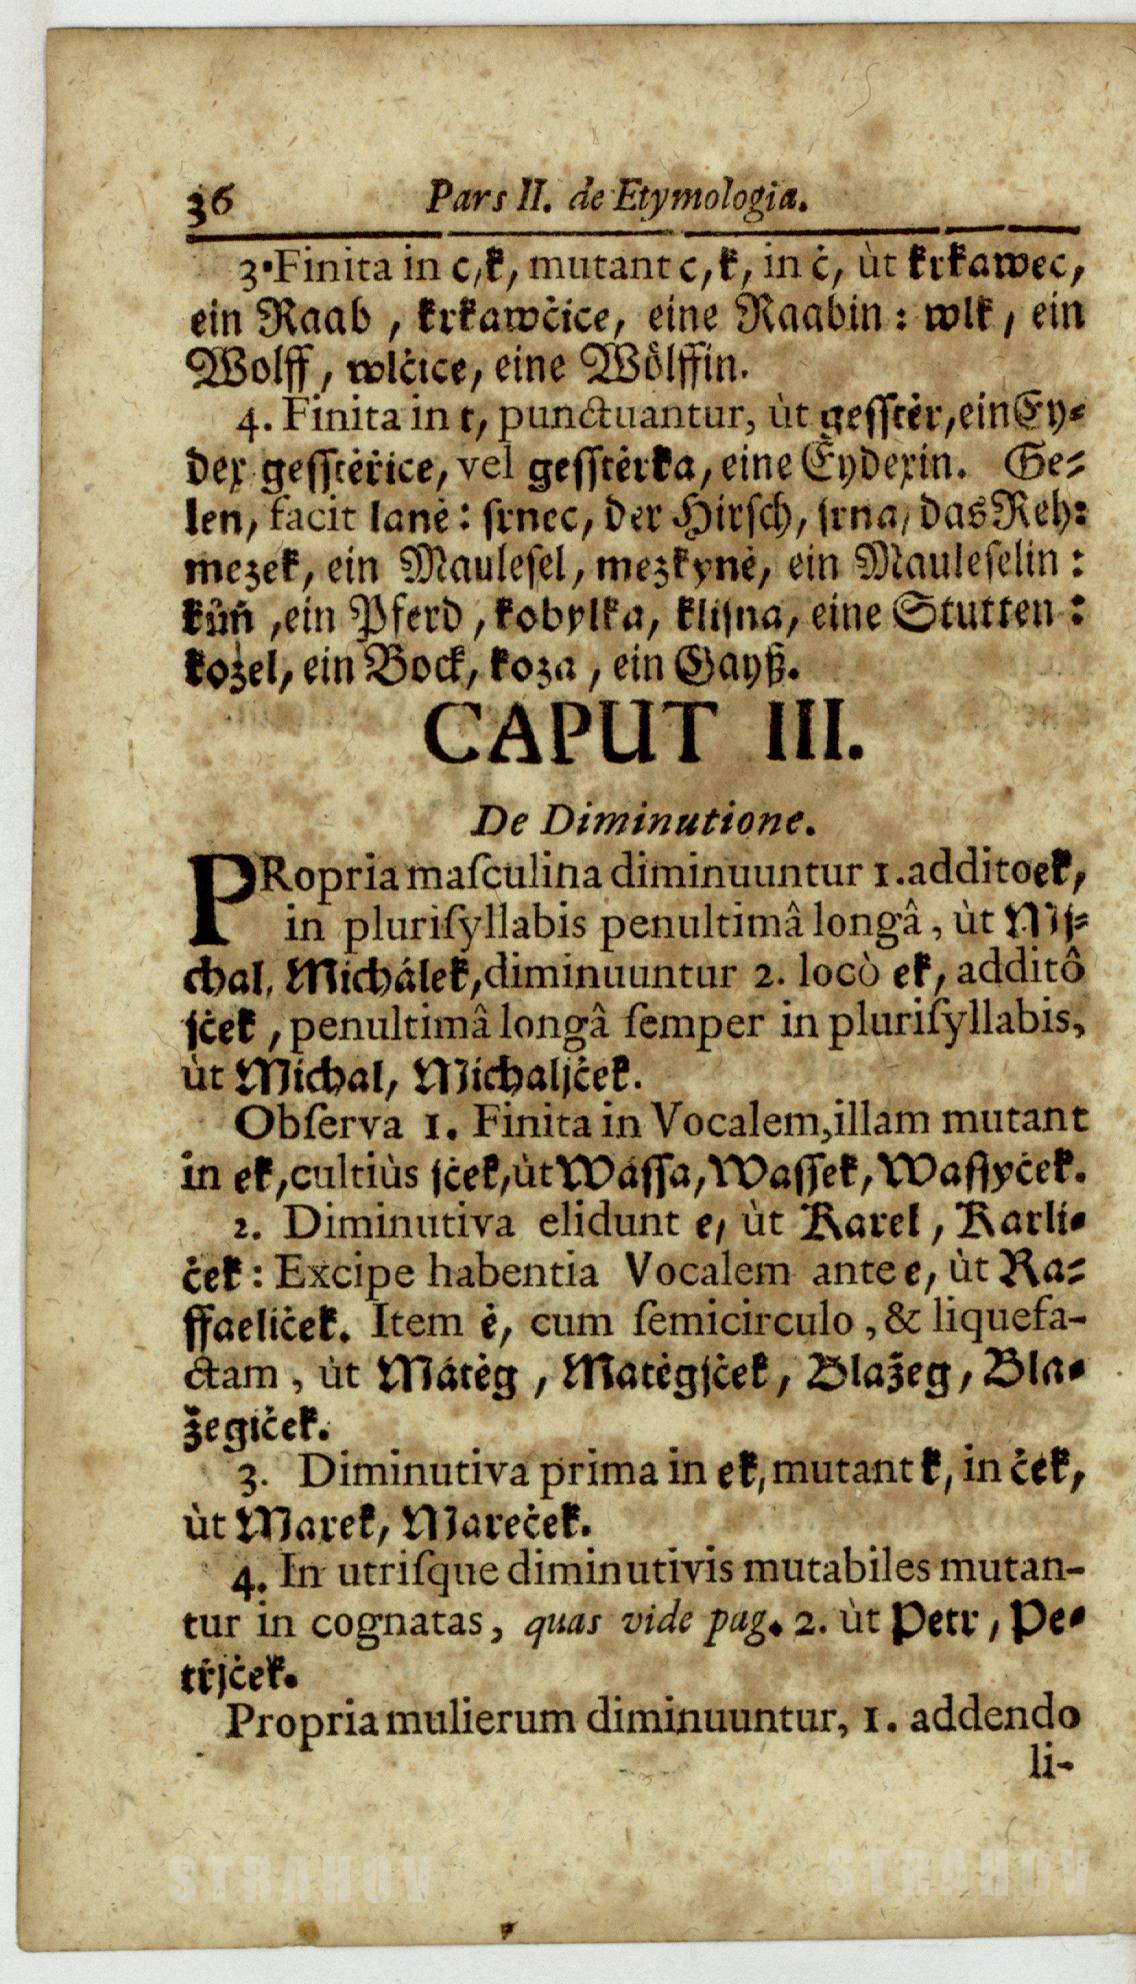 36 Pars II. de Etymologia.
3. Finita in c, k, mutant c, k, in ċ, ùt krkawec,
ein Raab, krkawċice, eine Raabin: wlk, ein
Wolff, wlċice, eine Wölffin.
4. Finita in r, punctuantur, ùt gesstėr, ein Ey-
dex gessterice, vel gesstėrka, eine Eydexin. Ge-
len, facit lanė: srnec, der Hirsch, srna, das Reh:
mezek, ein Maulesel, mezkynė, ein Mauleselin:
kůň, ein Pferd, kobylka, klisna, eine Stutten:
kozel, ein Bock, koza, ein Gayß.
CAPUT III.
De Diminutione.
PRopria maſculina diminuuntur 1. addito ek,
in pluriſyllabis penultimâ longâ, ùt Mj-
chal, Michálek, diminuuntur 2. locò ek, additô
jċek, penultimâ longâ ſemper in pluriſyllabis,
ùt Michal, Michaljċek.
Obſerva 1. Finita in Vocalem, illam mutant
in ek, cultiùs jċek, ùt Wássa, Wassek, Wassyċek.
2. Diminutiva elidunt e, ùt Karel, Karli-
ċek: Excipe habentia Vocalem ante e, ùt Ra-
ffaeliċek. Item ė, cum ſemicirculo, & liquefa-
ctam, ùt Mátėg, Matėgjċek, Blažeg, Bla-
žegiċek.
3. Diminutiva prima in ek, mutant k, in ċek,
ùt Marek, Mareċek.
4. In utriſque diminutivis mutabiles mutan-
tur in cognatas, quas vide pag. 2. ùt Petr, Pe-
tṙjċek.
Propria mulierum diminuuntur, 1. addendo
li-
STRAHOV STRAHOV